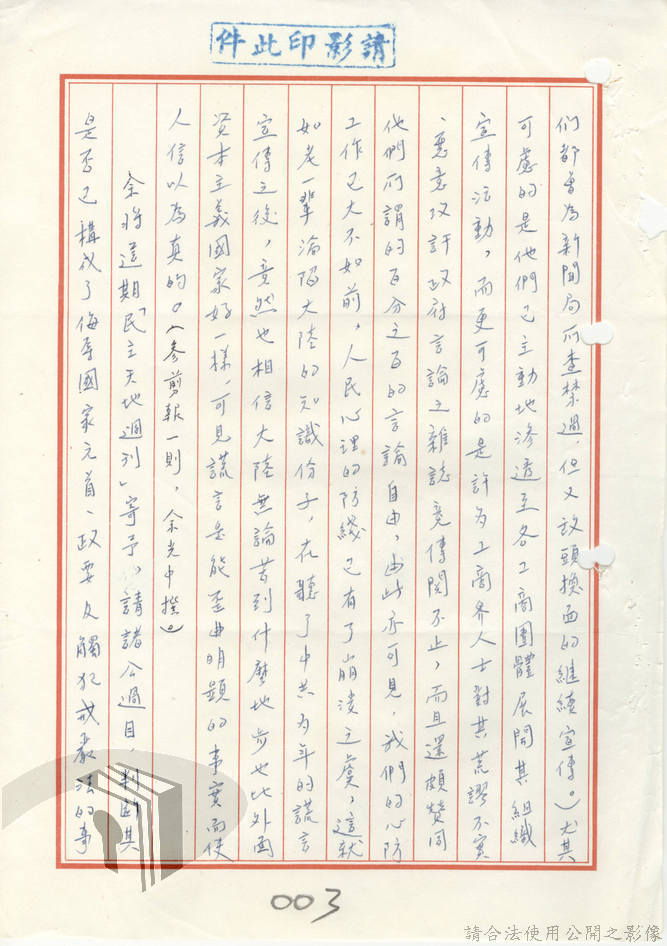 請影印此件
们都曾為新聞局所查禁過，但又改頭換面的継續宣傳。）尤其
可慮的是他們已主動地滲透至各工商團體展開其組織
宣傳活動，而更可慮的是許为工商界人士對其荒謬不實
、惡意攻訐政府言論之雜誌竟傳閱不止，而且還頗贊同
他們所謂的百分之百的言論自由，由此亦可見，我們的心防
工作已大不如前，人民心理的防綫已有了崩潰之虞，這就
如老一輩淪陷大陸的知識份子，在聽了中共为年的謊言
宣傳之後，竟然也相信大陸無論苦到什麼地步也比外面
資本主義國家好一樣，可見謊言是能歪曲明顯的事實而使
人信以為真的。（參剪報一則，余光中撰。）
余將這期「民主天地週刊」寄予，請諸公過目，判断其
是否已構成了侮辱國家元首、政要及觸犯戒嚴法的事
003
請合法使用公開之影像